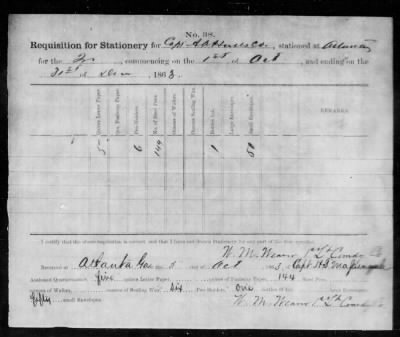 No. 38.
Requisition for Stationery for Capt , stationed at Atlanta
for the , commencing on the 1st of Oct , and ending on the
31st of Dec 1863.
Quires Letter Paper.
Qrs. Foolscap Paper.
Pen Holders.
No. of Steel Pens.
Ounces of Wafers.
Ounces Sealing Wax.
Bottles Ink.
Large Envelopes.
Small Envelopes.
REMARKS.
5 6 144 1 50
I certify that the above requisition is correct, and that I have not drawn Stationery for any part of the time specified.
W. M. Weaver 1st Lt Comdg Co
Received at Atlanta Ga 5 day of Oct 1863, of Capt
Assistant Quartermaster, five quires Letter Paper, quires of Foolscap Paper, 144 Steel Pens,
ounces of Wafers, ounces of Sealing Wax, six Pen Holders, One
fifty small Envelopes.
W. M. Weaver 1st Lt Comdg Co